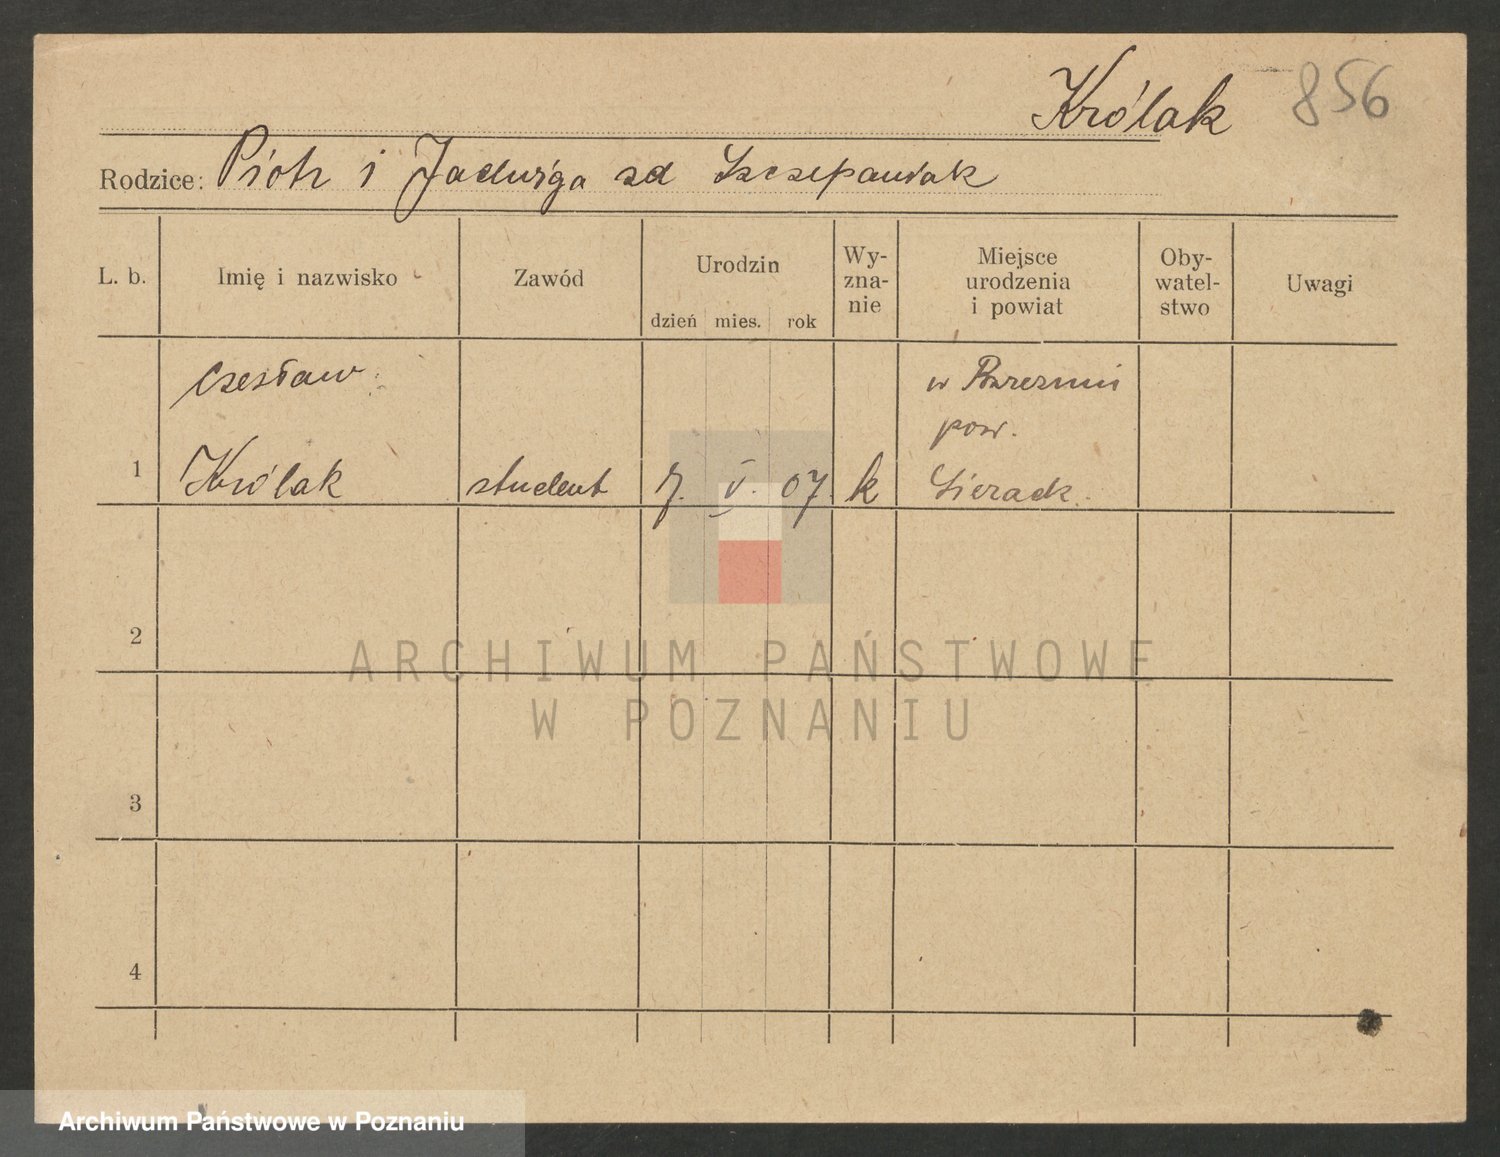 Królak 856
Rodzice: Piotr i Jadwiga zd Szczepaniak
L. b. Imię i nazwisko Zawód Urodzin dzień mies. rok Wy-zna-nie Miejsce urodzenia i powiat Oby-watel-stwo Uwagi
Czesław w
pow.
1 Królak student 7. V. 07. k Sieradz.
2
3
4
ARCHIWUM PAŃSTWOWE
W POZNANIU
Archiwum Państwowe w Poznaniu